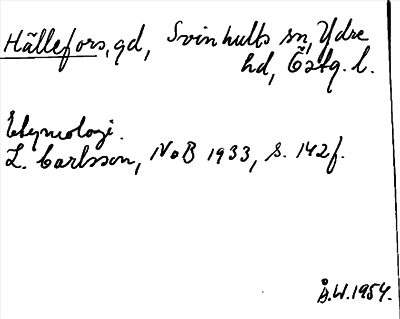 Hällefors, gd, Svinhults sn, Ydre
hd, Östg. l.
Etymologi.
L. Carlsson, NoB 1933, s. 142f.
Å.W. 1954.